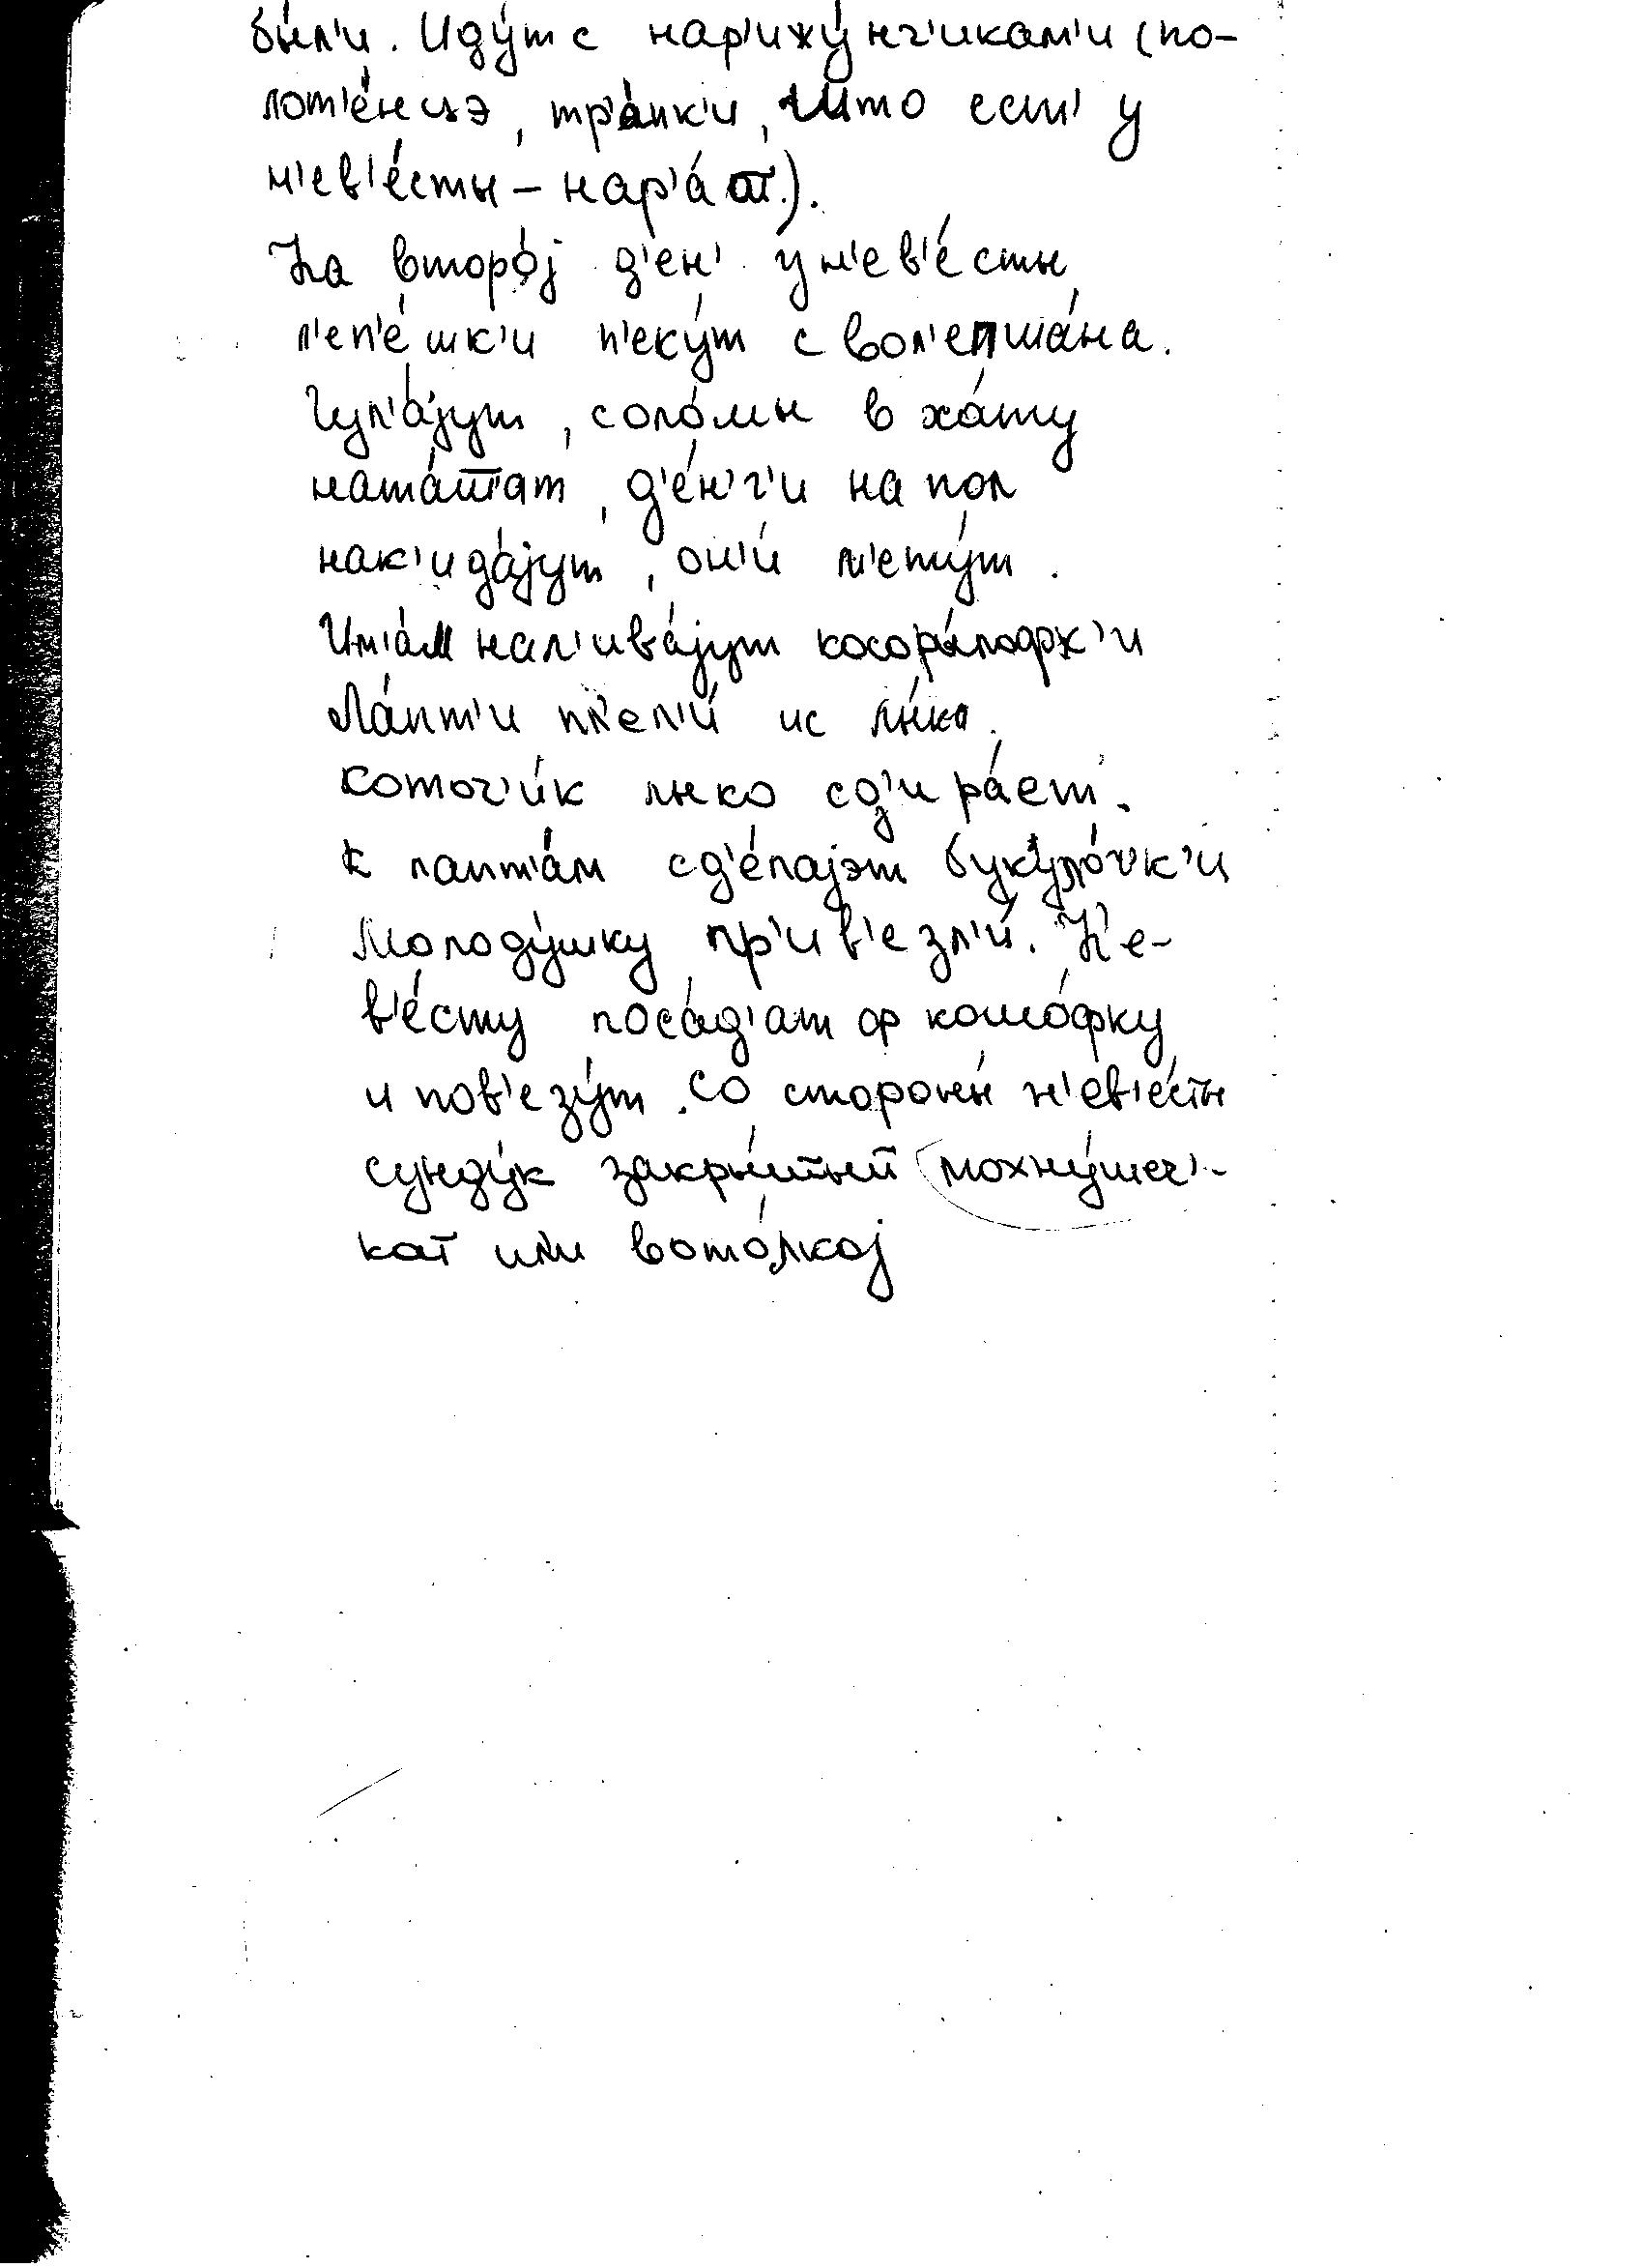 бы́л'и. Иду́т с нар'ижу́нч'икам'и (по-
лот'е́нцэ, тр'а́пк'и, што ест' у
н'ев'е́сты – нар'а́т).
На второ́j д'ен' у н'ев'е́сты
л'еп'е́шк'и п'еку́т с вол'епша́на.
Гул'а́jут, соло́мы в ха́ту
ната́шат, д'е́н'г'и на пол
нак'ида́jут, он'и́ м'ету́т.
нал'ива́jут
Ла́пт'и пл'ел'и́ ис лы́ка.
Коточ'и́к лыко сд'ира́ет.
К лапт'а́м сд'е́лаjэт
Молоду́шку пр'ив'езл'и́. Н'е-
в'е́сту поса́д'ат ф кошо́фку
и пов'езу́т. Со стороны́ н'ев'е́сты
сунду́к закры́тыī мохну́шеч'-
каī или вото́лкоj